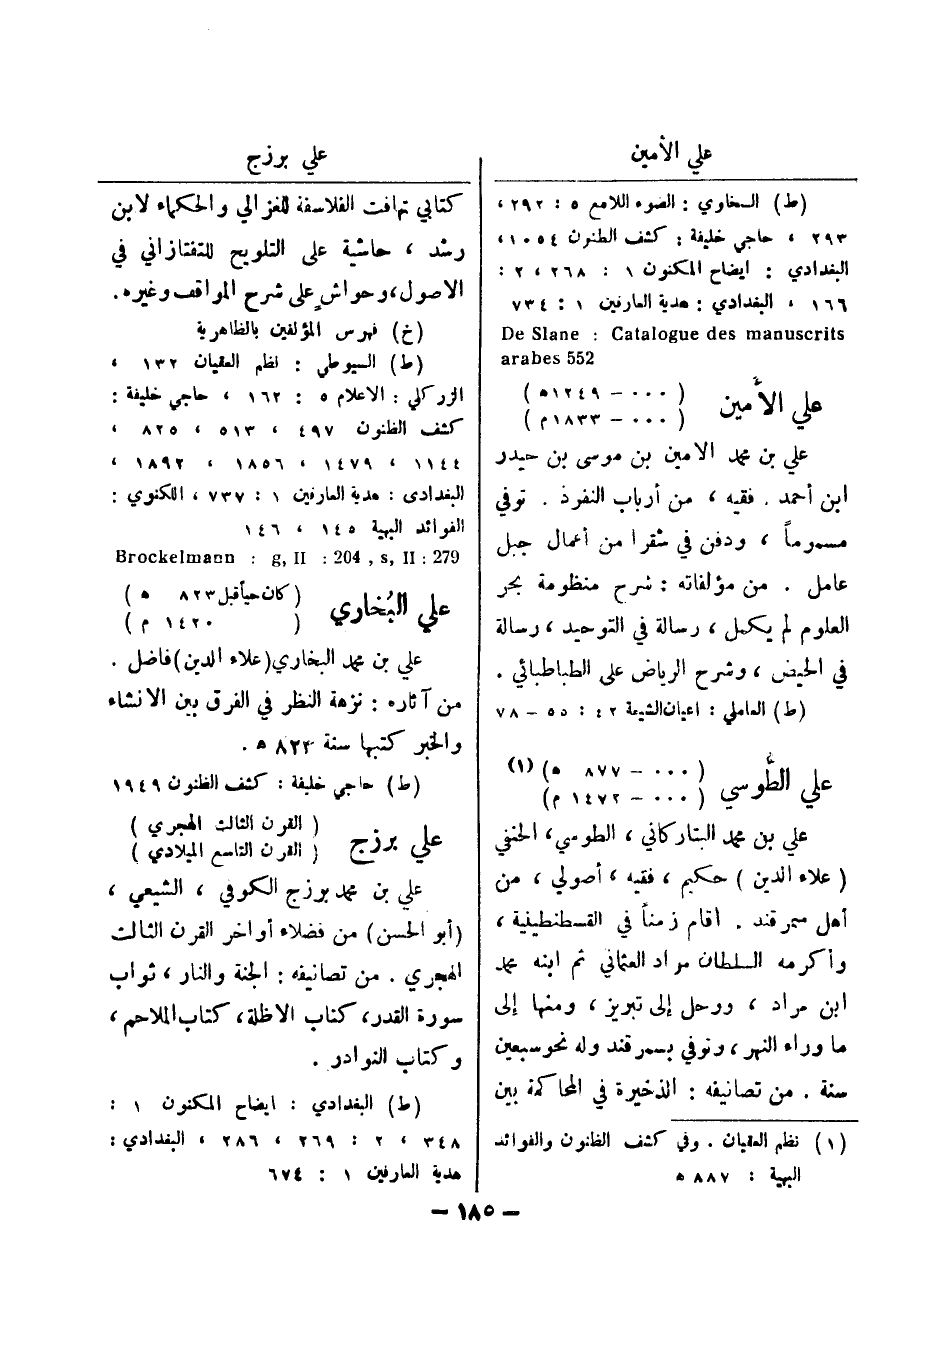 علي الأمين
(ط) السخاوي : الضوء اللامع ٥ : ٢٩٢ ،
٢٩٣ ، حاجي خليفة : كشف الظنون ١٠٥٤،
البغدادي : ايضاح المكنون ١ : ٢٦٨ ، ٢ :
١٦٦ ، البغدادي : هدية العارفين ١ : ٧٣٤
De Slane : Catalogue des manuscrits
arabes 552
علي الأمين ( ٠٠٠ – ١٢٤٩ه )
( ٠٠٠ – ١٨٣٣م )
علي بن محمد الامين بن موسى بن حيدر
ابن أحمد . فقيه ، من أرباب النفوذ . توفي
مسموماً ، ودفن في شقرا من أعمال جبل
عامل . من مؤلفاته : شرح منظومة بحر
العلوم لم يكمل ، رسالة في التوحيد ، رسالة
في الحيض ، وشرح الرياض على الطباطبائي .
(ط) العاملي : اعيان الشيعة ٤٢ : ٥٥ – ٧٨
علي الطُّوسي ( ٠٠٠ – ٨٧٧ ه ) (١)
( ٠٠٠ – ١٤٧٢ م )
علي بن محمد البتاركاني ، الطوسي ، الحنفي
( علاء الدين ) حكيم ، فقيه ، أصولي ، من
أهل سمرقند . أقام زمناً في القسطنطينية ،
وأكرمه السلطان مراد العثماني ثم ابنه محمد
ابن مراد ، ورحل إلى تبريز ، ومنها إلى
ما وراء النهر ، وتوفي بسمرقند وله نحو سبعين
سنة . من تصانيفه : الذخيرة في المحاكمة بين
(١) نظم العقيان . وفي كشف الظنون والفوائد
البهية : ٨٨٧ ه
علي برزج
كتابي تهافت الفلاسفة للغزالي والحكماء لابن
رشد ، حاشية على التلويح للتفتازاني في
الاصول ، وحواشٍ على شرح المواقف وغيره .
(خ) فهرس المؤلفين بالظاهرية
(ط) السيوطي : نظم العقيان ١٣٢ ،
الزركلي : الاعلام ٥ : ١٦٢ ، حاجي خليفة :
كشف الظنون ٤٩٧ ، ٥١٣ ، ٨٢٥ ،
١١٤٤ ، ١٤٧٩ ، ١٨٥٦ ، ١٨٩٢ ،
البغدادي : هدية العارفين ١ : ٧٣٧ ، اللكنوي :
الفوائد البهية ١٤٥ ، ١٤٦
Brockelmann : g, II : 204 , s, II : 279
علي البُخاري ( كان حياً قبل ٨٢٣ ه )
( ١٤٢٠ م )
علي بن محمد البخاري (علاء الدين) فاضل .
من آثاره : نزهة النظر في الفرق بين الانشاء
والخبر كتبها سنة ٨٢٣ ه .
(ط) حاجي خليفة : كشف الظنون ١٩٤٩
علي برزج ( القرن الثالث الهجري )
( القرن التاسع الميلادي )
علي بن محمد بوزج الكوفي ، الشيعي ،
(أبو الحسن) من فضلاء أواخر القرن الثالث
الهجري . من تصانيفه : الجنة والنار ، ثواب
سورة القدر، كتاب الاظلة، كتاب الملاحم ،
وكتاب النوادر .
(ط) البغدادي : ايضاح المكنون ١ :
٣٤٨ ، ٢ : ٢٦٩ ، ٢٨٦ ، البغدادي :
هدية العارفين ١ : ٦٧٤
– ١٨٥ –